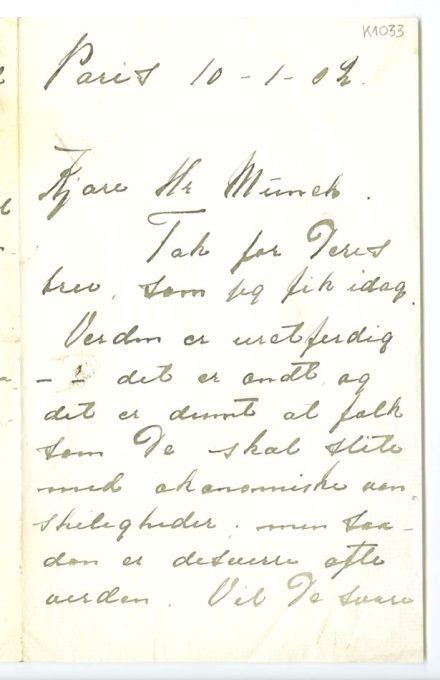 K1033
Paris 10-1-02.
Kjære Hr Munch.
Tak for Deres
brev, som jeg fik idag.
Verden er uretferdig
- - det er ondt, og
det er dumt at folk
som De skal slite
med økonomiske van
skeligheder, men saa-
dan er desverre ofte
verden. Vil De svare